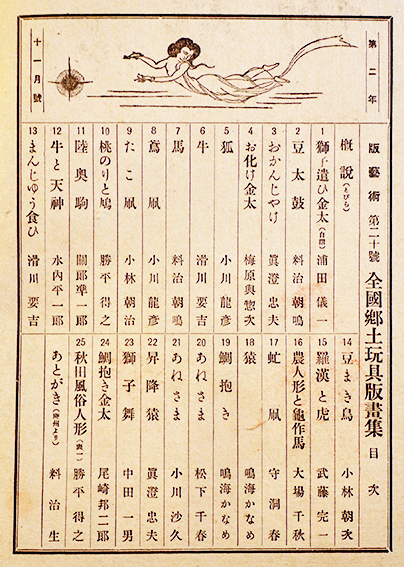 第二年
十一月號
版藝術 第二十號 全國鄕土玩具版畫集 目次
概說(とびら)
1 獅子遣ひ金太(台紙) 浦田儀一
2 豆太鼓 料治朝鳴
3 おかんじやけ 眞澄忠夫
4 お化け金太 梅原與惣次
5 狐 小川龍彥
6 牛 滑川要吉
7 馬 料治朝鳴
8 鳶凧 小川龍彥
9 たこ凧 小林朝治
10 桃のりと鳩 勝平得之
11 陸奧駒 關郎凖一郎
12 牛と天神 水內平一郎
13 まんじゆう食ひ 滑川要吉
14 豆まき鳥 小林朝次
15 羅漢と虎 武藤完一
16 農人形と龜作馬 大場千秋
17 虻凧 守洞春
18 猿 鳴海かなめ
19 鯛抱き 鳴海かなめ
20 あねさま 松下千春
21 あねさま 小川沙久
22 昇降猿 眞澄忠夫
23 獅子舞 中田一男
24 鯛抱き金太 尾崎邦二郎
25 秋田風俗人形(表一) 勝平得之
あとがき 料治生